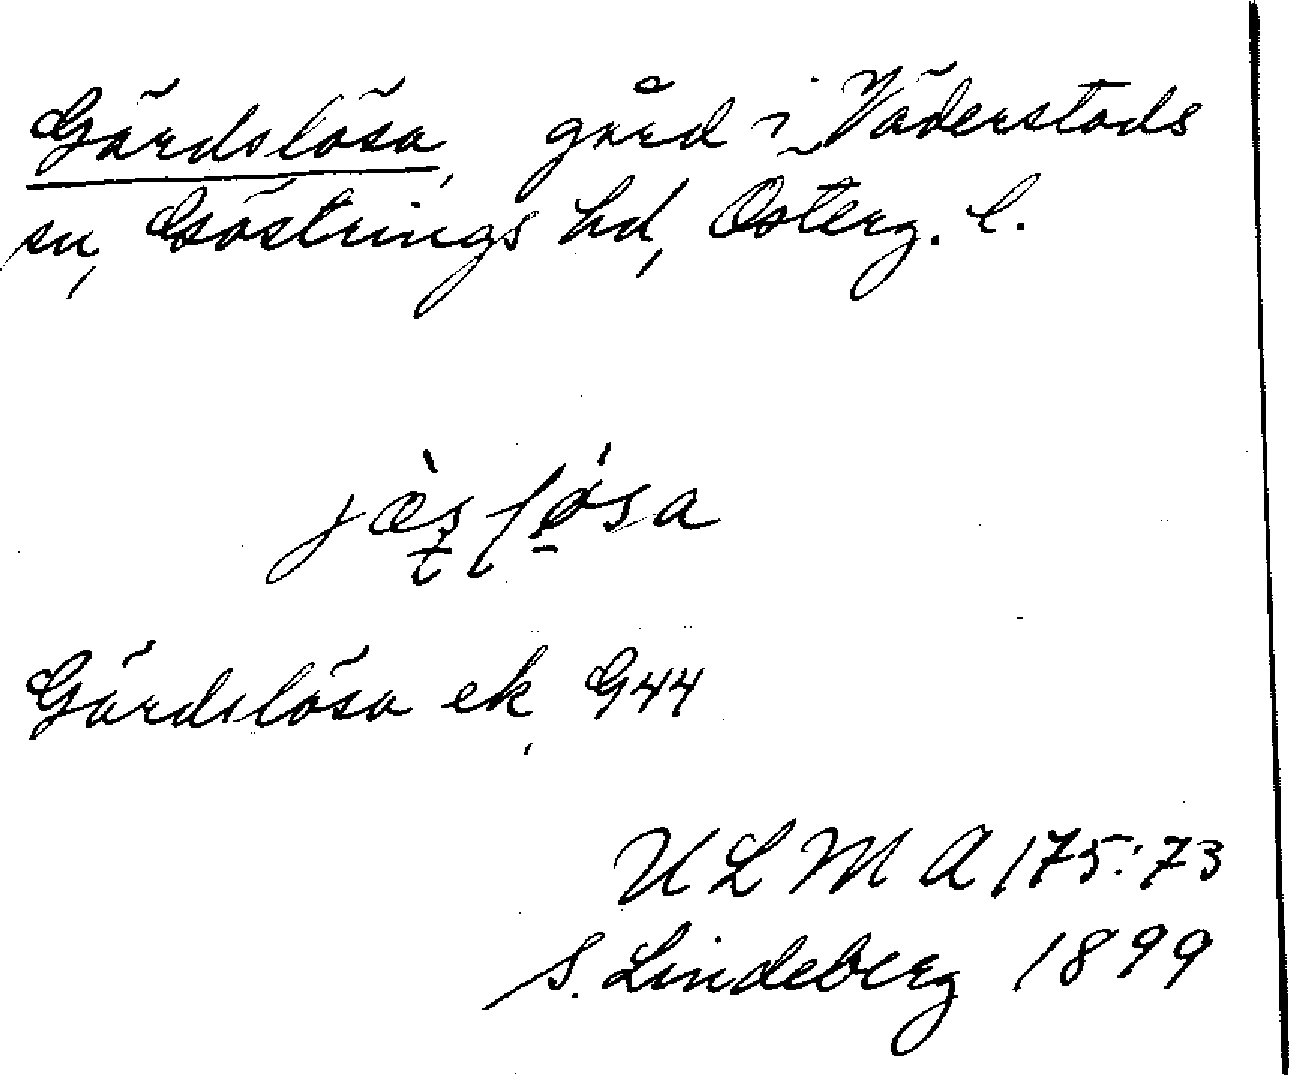 Gärdslösa, gård i Väderstads
sn, Göstrings hd, Österg. l.
Gärdslösa ek, G44
ULMA 175:73
S. Lindeberg 1899